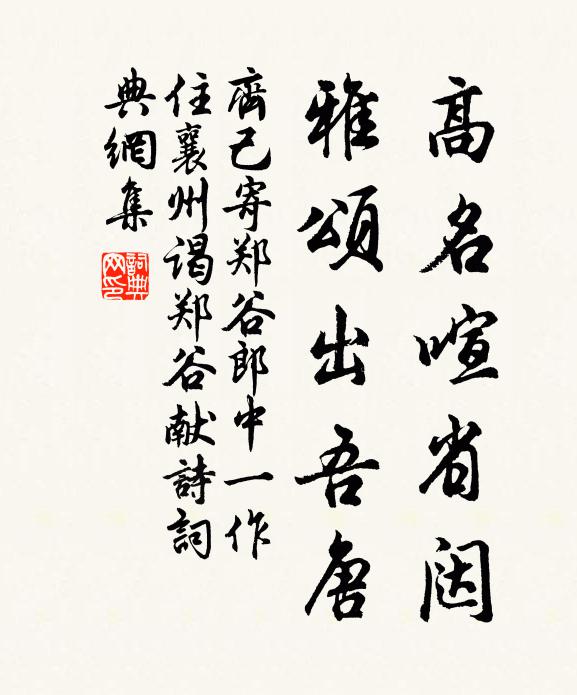 高名喧省闼
雅頌出吾唐
齊己寄郑谷郎中一作
住襄州谒郑谷献詩詞
典網集
詞典
网印